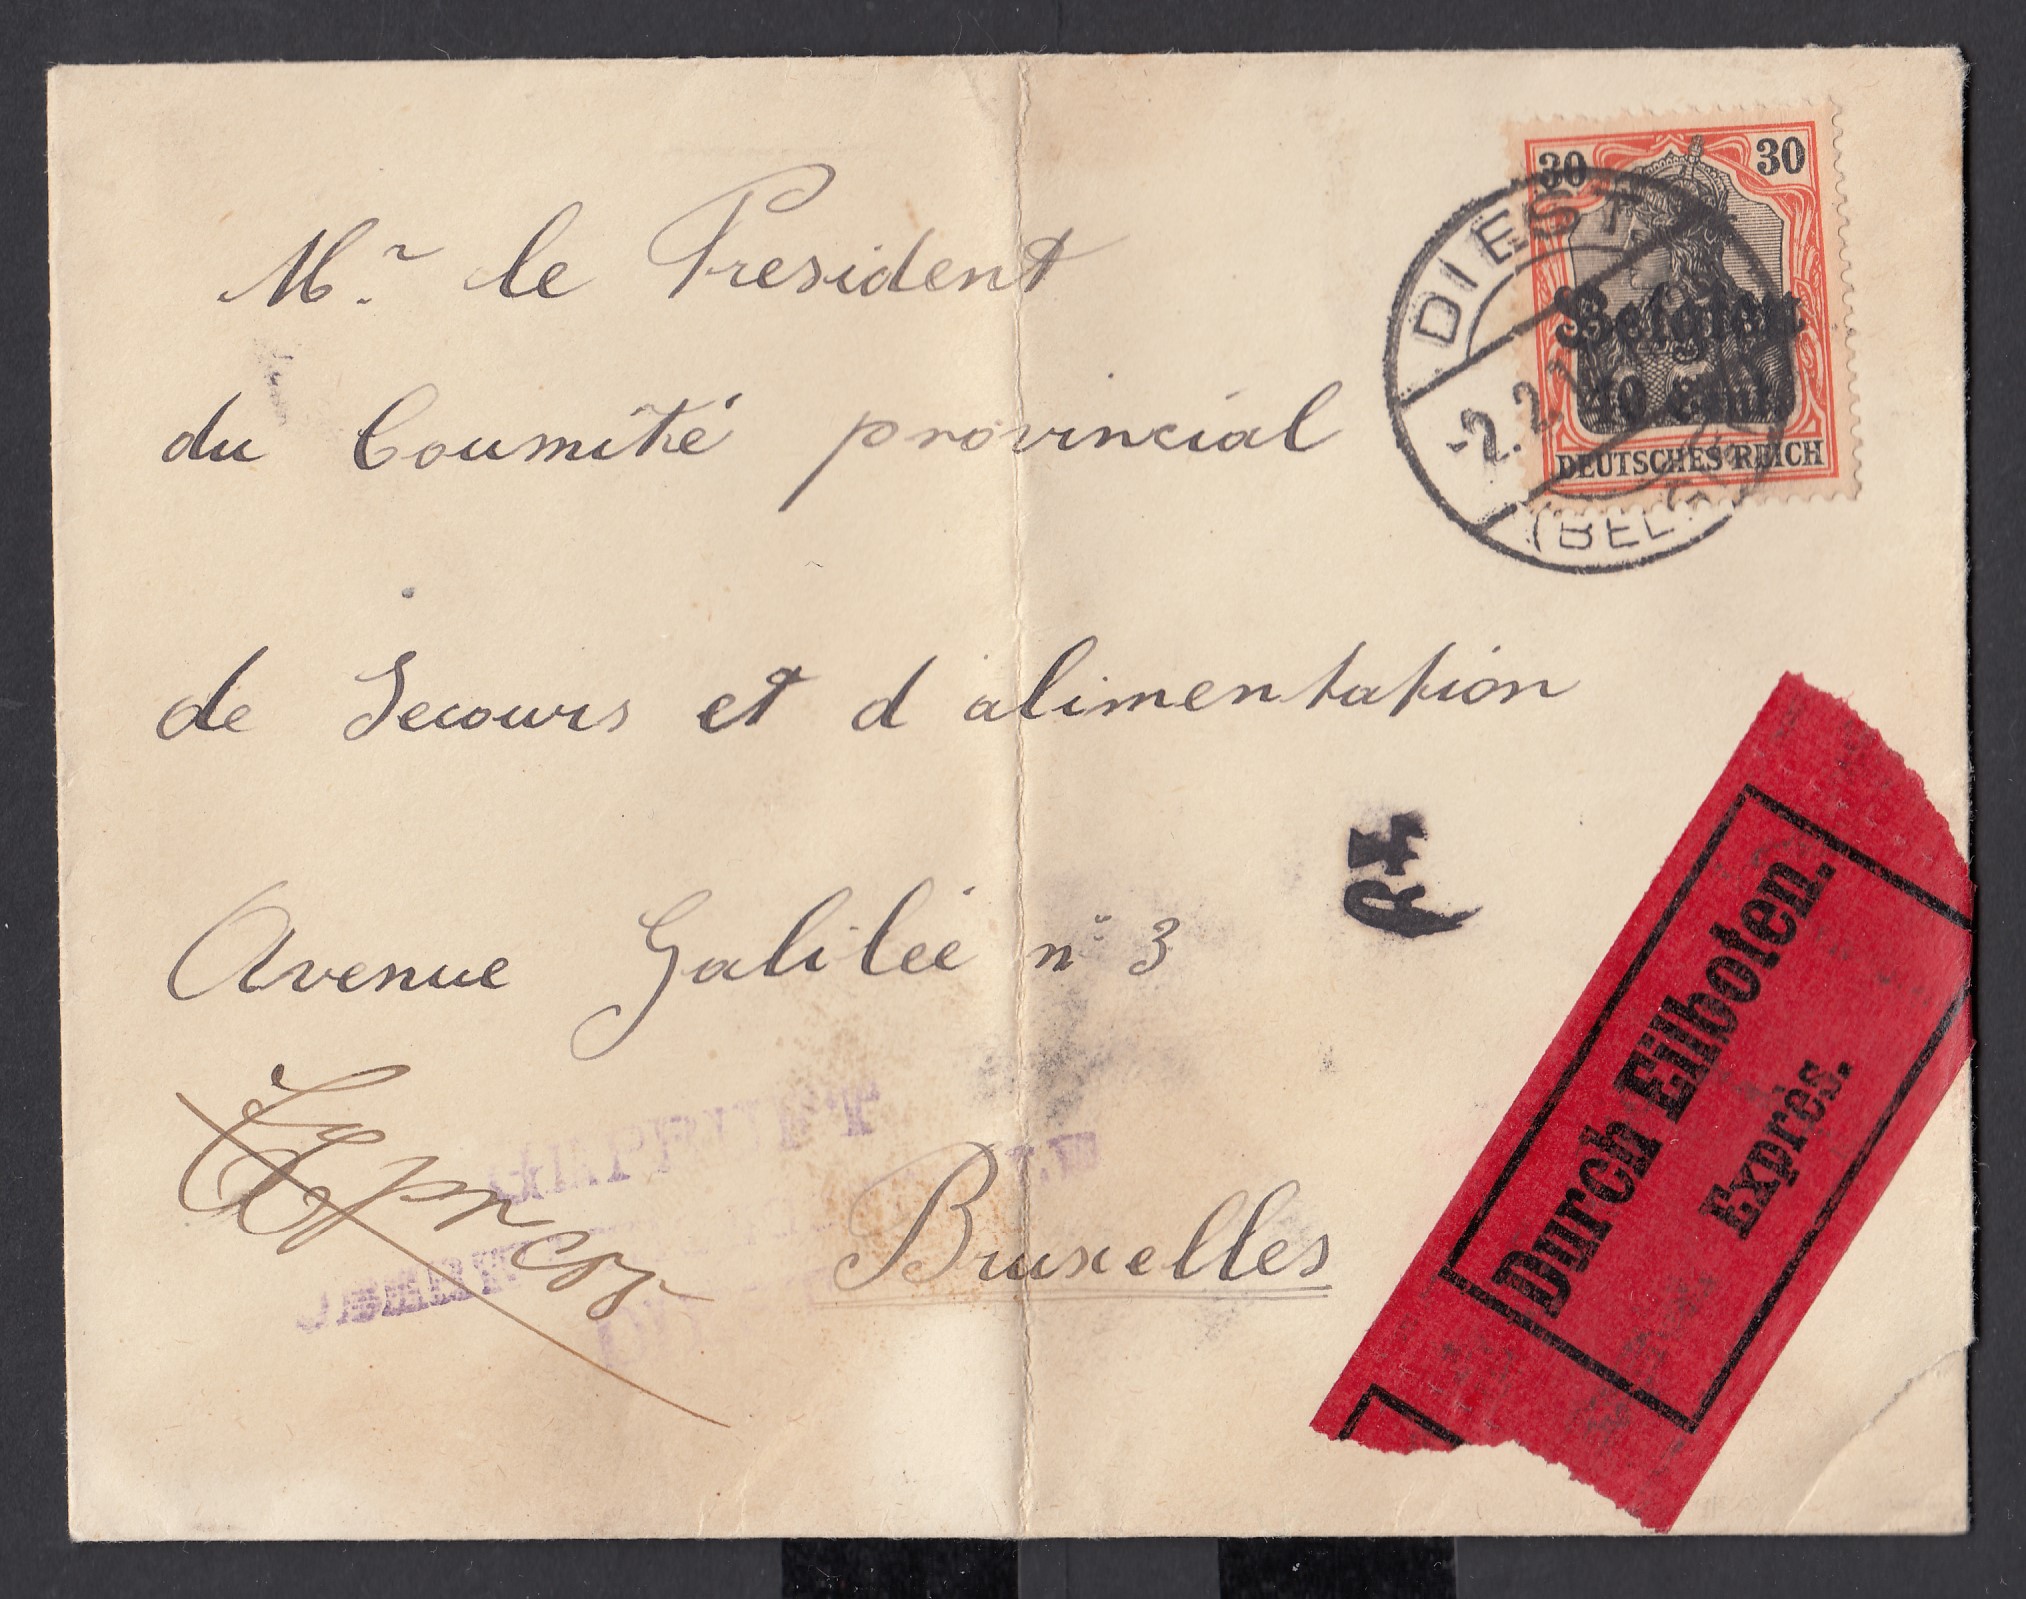 Mr. le President
du Coumité provincial
de Secours et d alimentation
Avenue Galilée n° 3
Bruxelles
Expres
30 30
Belgien
40 Cent.
DEUTSCHES REICH
DIEST
-2.2.1
(BEL
Durch Eilboten.
Exprès.